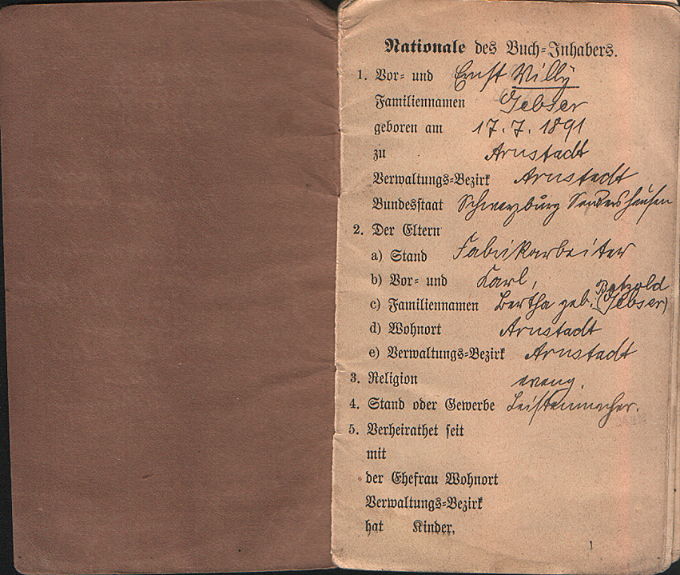 Nationale des Buch-Inhabers.
1. Vor- und Ernst Willÿ
Familiennamen Gebser
geboren am 17. 7. 1891
zu Arnstadt
Verwaltungs-Bezirk Arnstadt
Bundesstaat Schwarzburg Sondershausen
2. Der Eltern
a) Stand Fabrikarbeiter
b) Vor- und Karl, Petzold
c) Familiennamen Bertha geb. (Gebser)
d) Wohnort Arnstadt
e) Verwaltungs-Bezirk Arnstadt
3. Religion evang.
4. Stand oder Gewerbe Leistenmacher.
5. Verheirathet seit
mit
der Ehefrau Wohnort
Verwaltungs-Bezirk
hat Kinder.